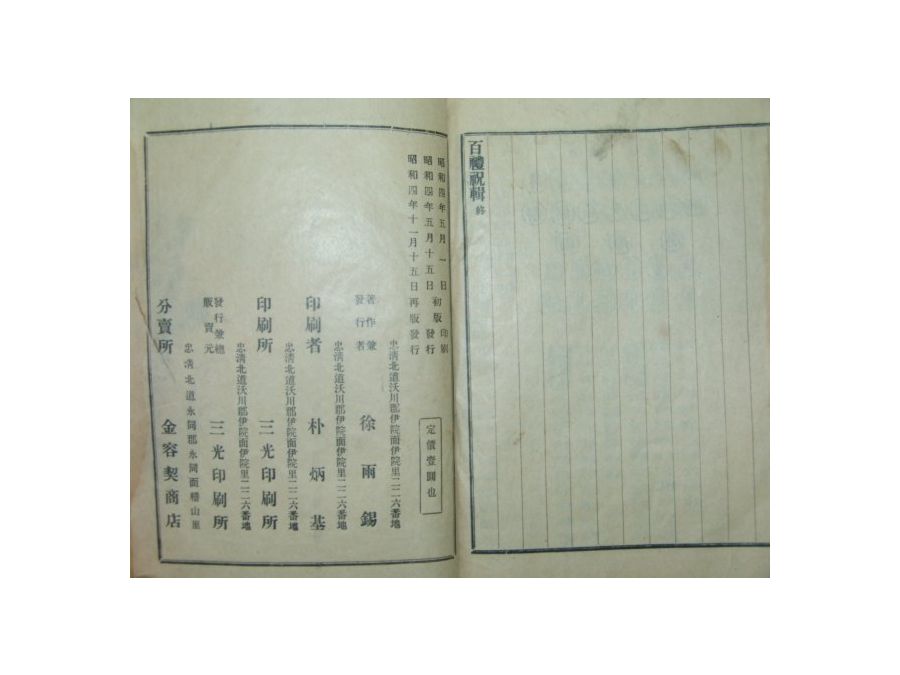 百禮祝輯 終
昭和四年五月一日初版印刷
昭和四年五月十五日發行
昭和四年十一月十五日再版發行
定價壹圓也
忠淸北道沃川郡伊院面伊院里二二六番地
著作兼發行者 徐雨錫
忠淸北道沃川郡伊院面伊院里二二六番地
印刷者 朴炳基
忠淸北道沃川郡伊院面伊院里二二六番地
印刷所 三光印刷所
忠淸北道沃川郡伊院面伊院里二二六番地
發行兼總販賣元 三光印刷所
忠淸北道永同郡永同面稽山里
分賣所 金容契商店